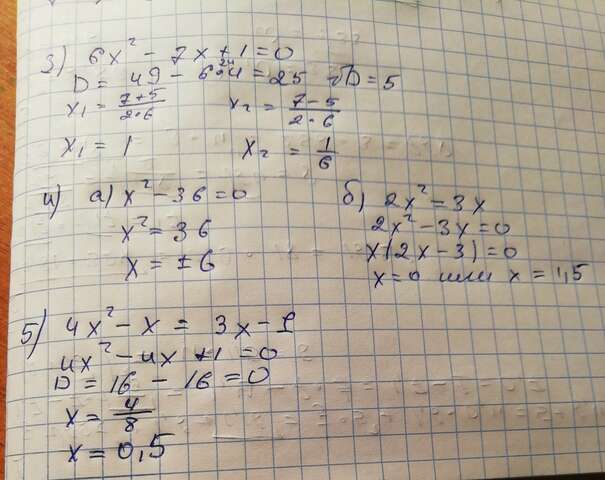 3) 6x² - 7x + 1 = 0
D = 49 - 6·4 = 25 √D = 5
x₁ = (7+5)/(2·6) x₂ = (7-5)/(2·6)
x₁ = 1 x₂ = 1/6
4) а) x² - 36 = 0
x² = 36
x = ±6
б) 2x² = 3x
2x² - 3x = 0
x(2x - 3) = 0
x = 0 или x = 1,5
5) 4x² - x = 3x - 1
4x² - 4x + 1 = 0
D = 16 - 16 = 0
x = 4/8
x = 0,5